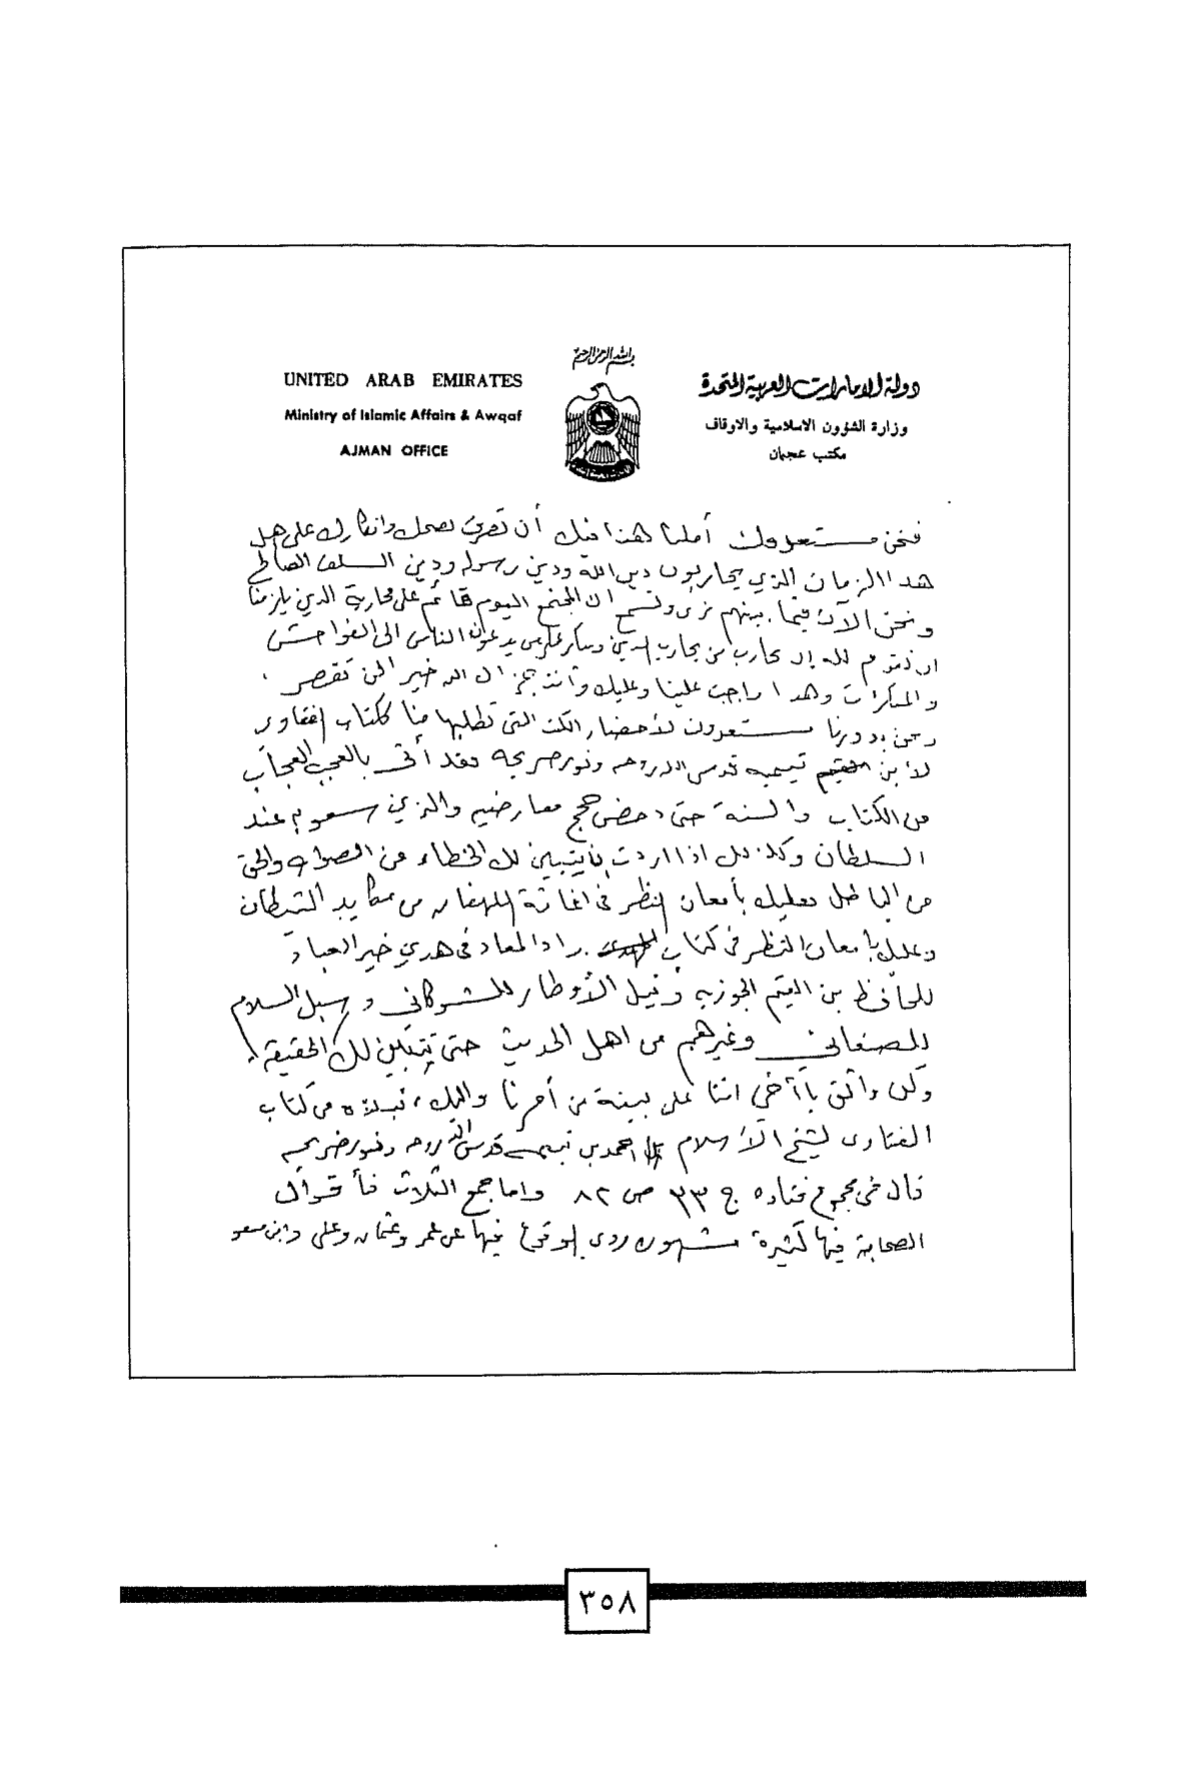 بسم الله الرحمن الرحيم
UNITED ARAB EMIRATES
Ministry of Islamic Affairs & Awqaf
AJMAN OFFICE
دولة الامارات العربية المتحدة
وزارة الشؤون الاسلامية والاوقاف
مكتب عجمان
فنحن مستعدون أملنا هذا منك أن تصرف نصحك وانكارك على أهل
هذا الزمان الذي يحاربون دين الله ودين رسوله ودين السلف الصالح
ونحن الآن فيما بينهم نرى ونسمع ان المجتمع اليوم قائم على محاربة الدين يلزمنا
ان نقوم لله ان نحارب من يحارب الدين وننكر على من يدعون الناس الى الفواحش
والمنكرات وهذا واجب علينا وعليك وأنت الله خير الى تقصر
ونحن بدورنا مستعدون لأحضار الكتب التي تطلبها منا ككتاب الفتاوى
لأبن تيميه قدس الله روحه ونور ضريحه فقد أتى بالعجب العجاب
من الكتاب والسنة حتى دحض حجج معارضيه والذين سعو به عند
السلطان وكذلك اذا اردت ان يتبين لك الخطاء من الصواب والحق
من الباطل فعليك بأمعان النظر في اغاثة اللهفان من مكايد الشيطان
وعليك بأمعان النظر في كتاب زاد المعاد في هدي خير العباد
للحافظ بن القيم الجوزيه ونيل الأوطار للشوكاني وسبل السلام
للصنعاني وغيرهم من اهل الحديث حتى يتبين لك الحقيقة
وكن واثق يا أخي اننا على بينة من أمرنا واليك نبذه من كتاب
الفتاوى لشيخ الأسلام احمد بن تيميه قدس الله روحه ونور ضريحه
قال في مجموع فتاده ج ٣٣ ص ٨٢ واما جمع الثلاث فأقوال
الصحابة فيها كثيرة مشهوره روى الوقوع فيها عن عمر وعثمان وعلي وابن مسعود
٣٥٨